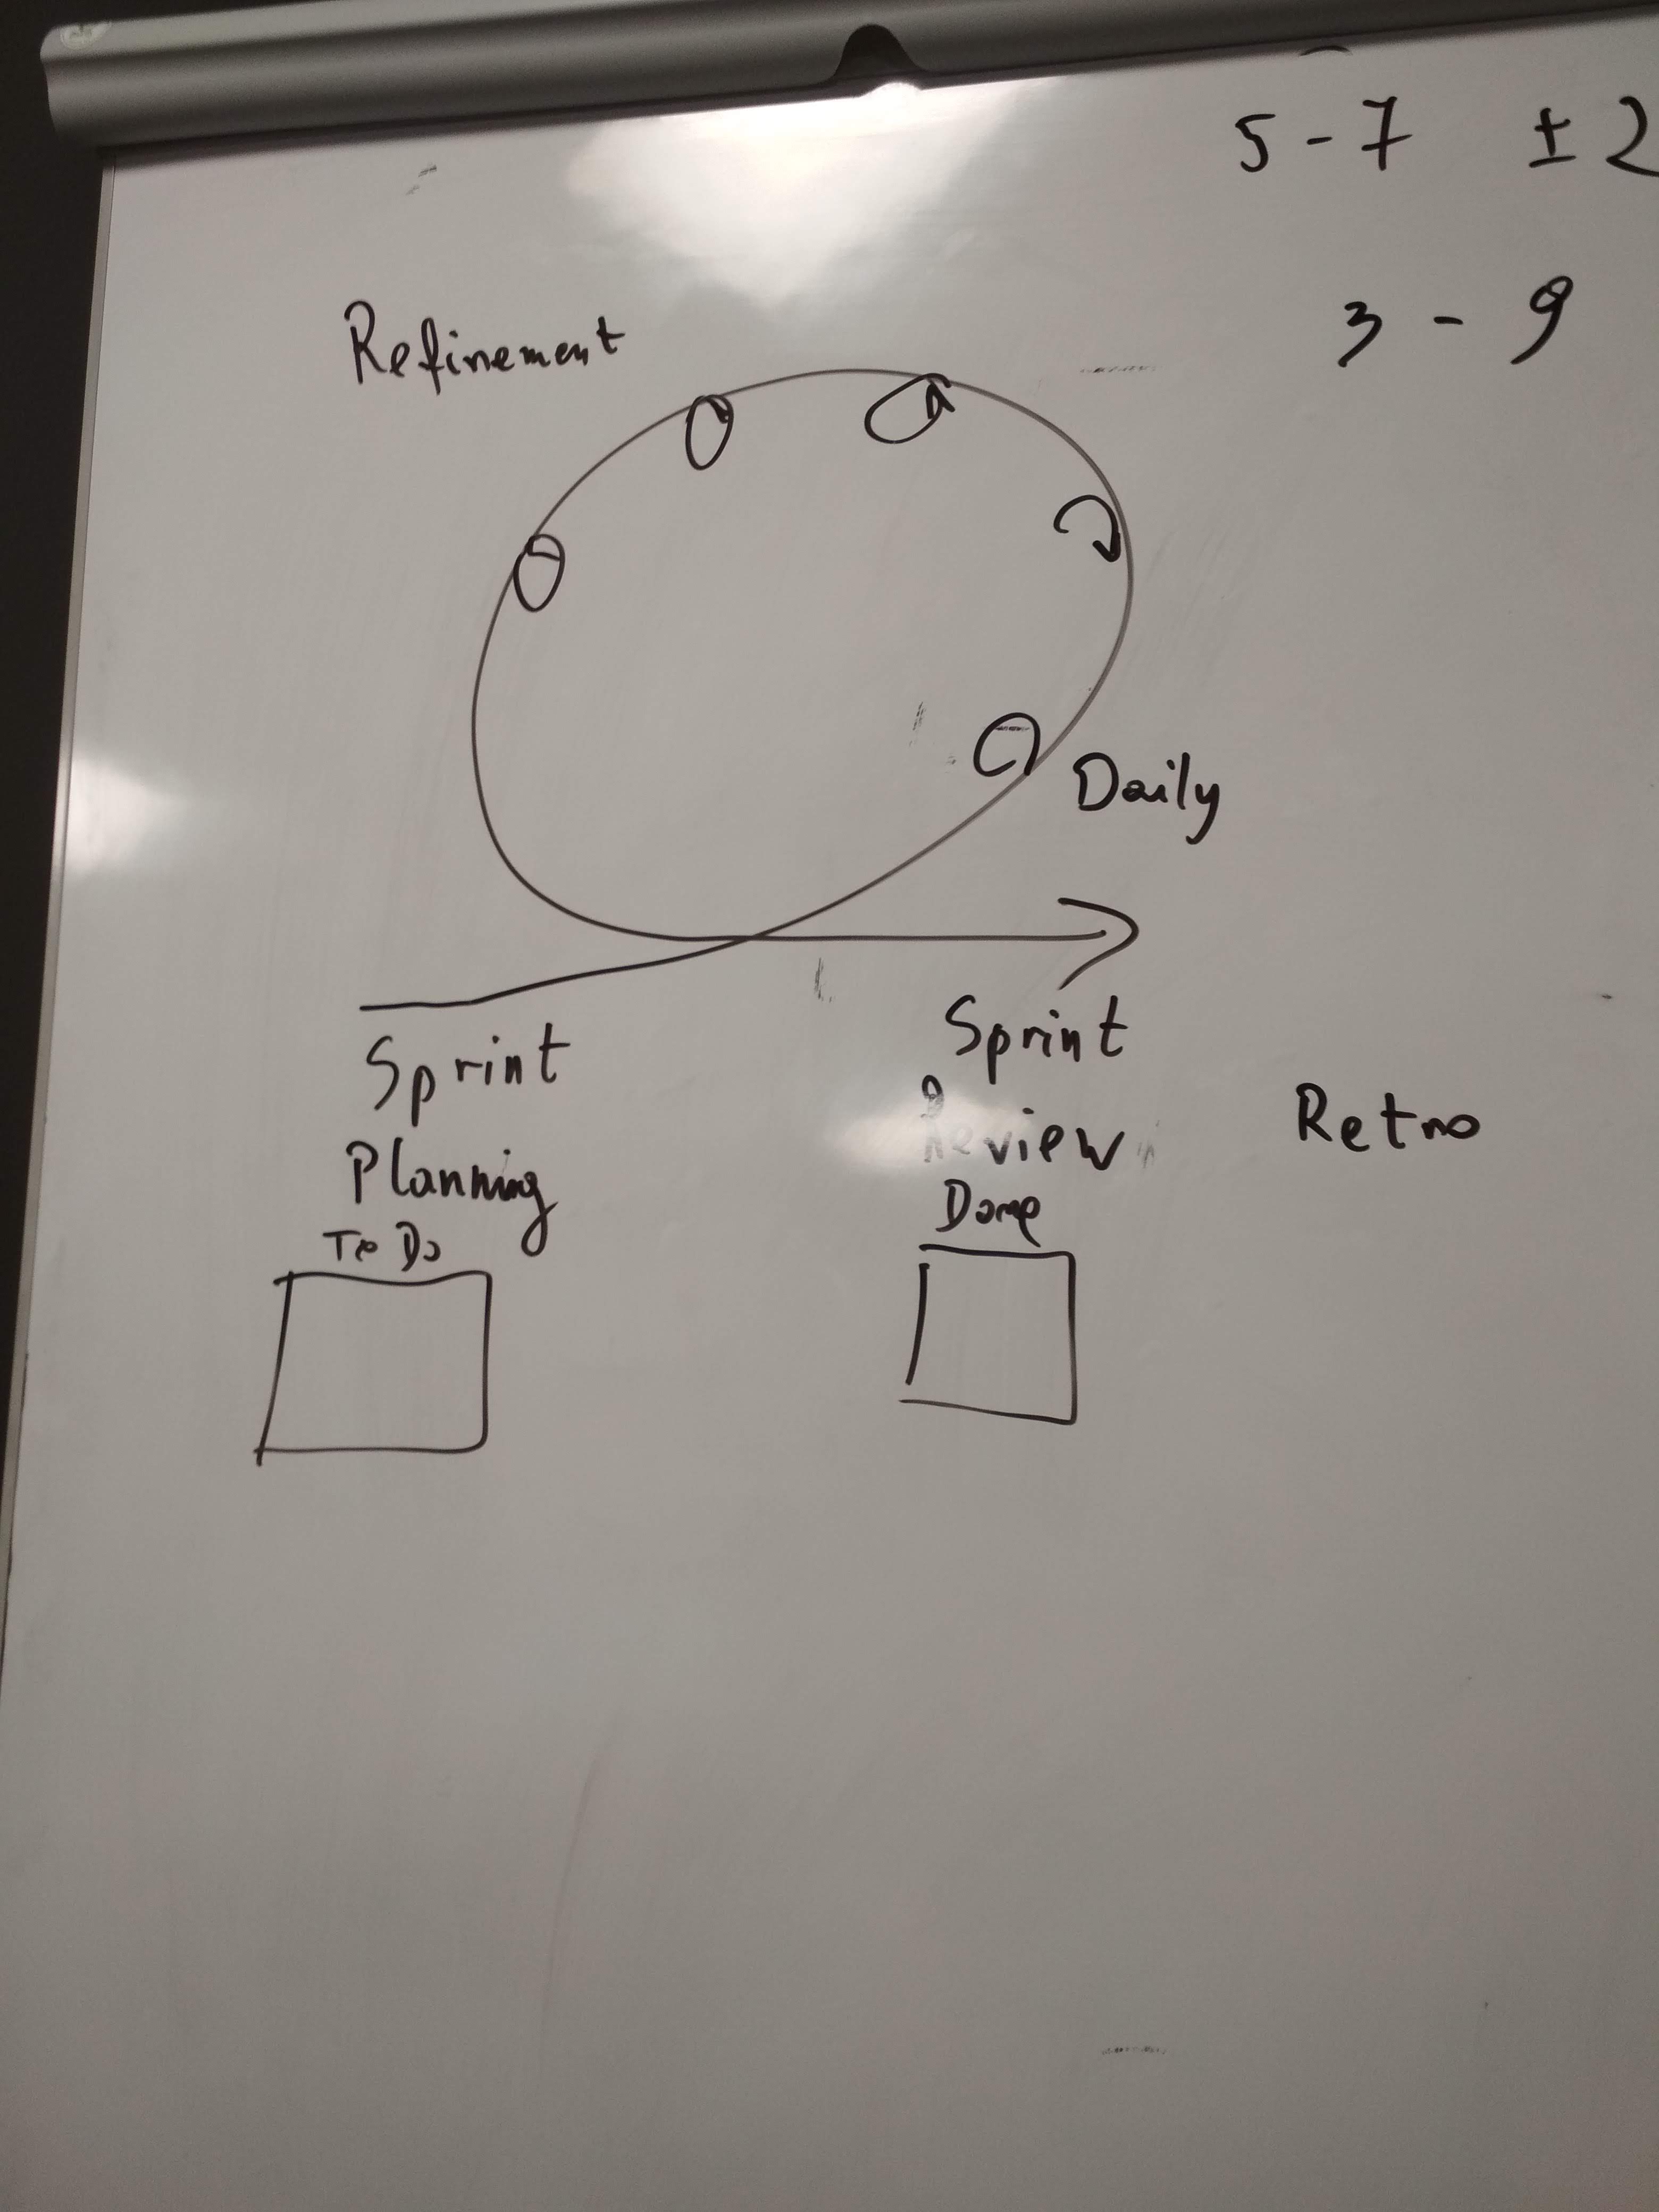 5 - 7 ± 2
3 - 9
Refinement
Daily
Sprint
Planning
To Do
Sprint
Review
Done
Retro